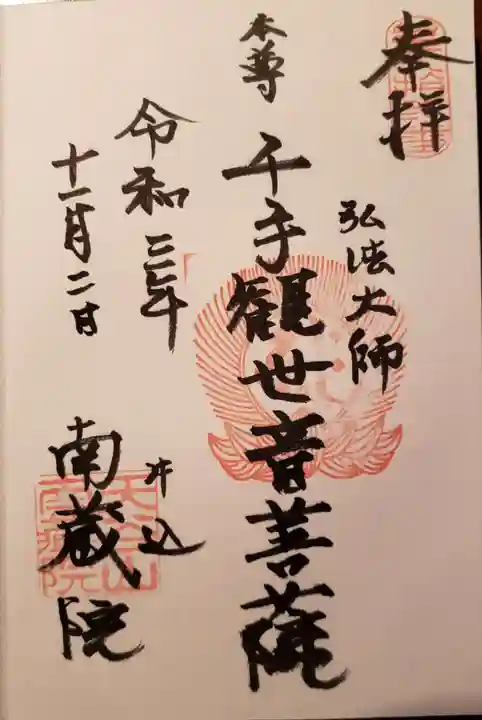 奉拝
弘法大師
本尊
千手観世音菩薩
令和三年
十一月二日
牛込
南蔵院